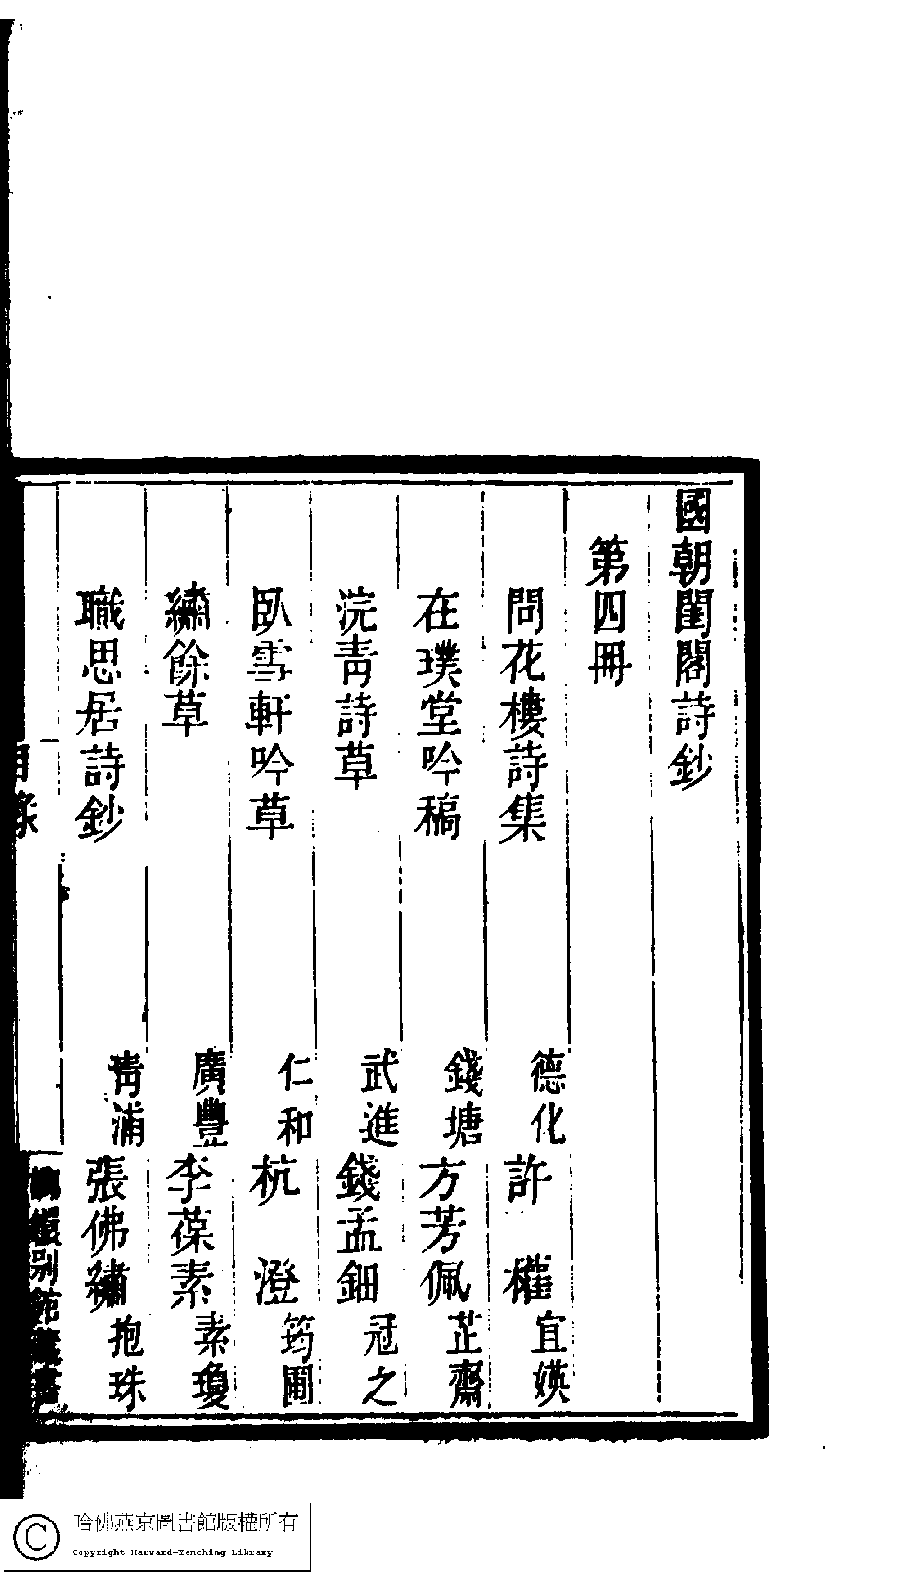 國朝閨閣詩鈔
第四冊
問花樓詩集 德化 許權 宜媖
在璞堂吟稿 錢塘 方芳佩 芷齋
浣青詩草 武進 錢孟鈿 冠之
臥雪軒吟草 仁和 杭澄 筠圃
繡餘草 廣豐 李葆素 素瓊
職思居詩鈔 青浦 張佛繡 抱珠
目錄
哈佛燕京圖書館版權所有
Copyright Harvard-Yenching Library